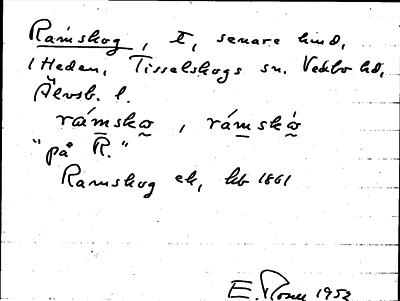 Ramskog, t, senare lund,
i Heden, Tisselskogs sn. Vedbo hd,
Älvsb. l.
rámsko̰, rámskò̰
"på R."
Ramskog ek, hb 1861
E. Rosen 1952